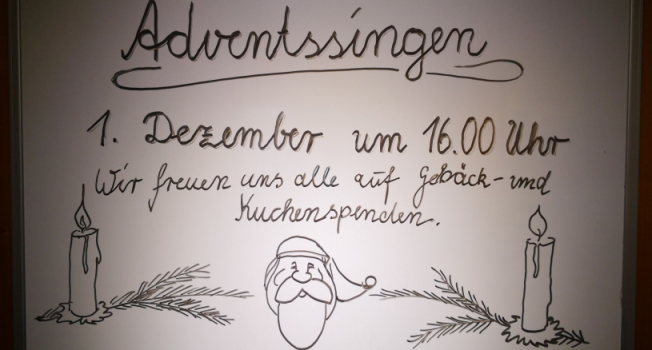 Adventssingen
1. Dezember um 16.00 Uhr
Wir freuen uns alle auf Gebäck- und
Kuchenspenden.